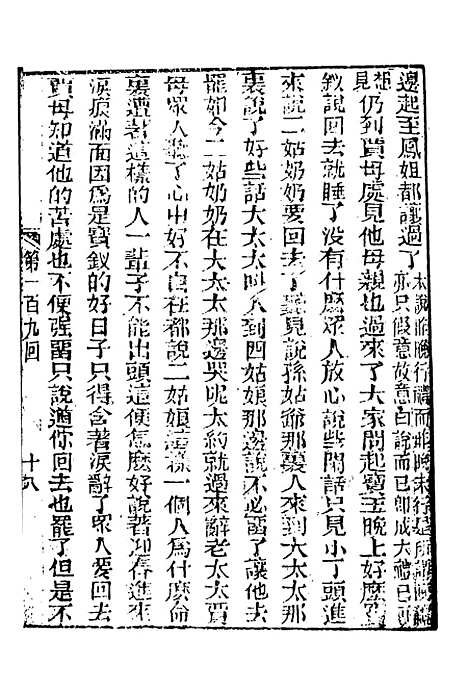 邊起至鳳姐都讓過了未說昨晚行禮而昨晚未行是所謂
亦只假意故意白說而已卽成大禮已
想仍到賈母處見他母親也過來了大家問起寶玉晚上好麽寶
釵說回去就睡了没有什麽衆人放心說些閒話只見小丫頭進
來說二姑奶奶要回去了聽見說孫姑爺那裏人來到大太太那
裏說了好些話大太太呌人到四姑娘那邊說不必畱了讓他去
罷如今二姑奶奶在大太太那邊哭呢大約就過來辭老太太賈
母衆人聽了心中好不自在都說二姑娘這樣一個人爲什麽命
裏遭着這樣的人一輩子不能出頭這便怎麽好說著迎春進來
淚痕滿面因爲是寶釵的好日子只得含著淚辭了衆人要回去
賈母知道他的苦處也不便强畱只說道你回去也罷了但是不
第一百九回 十八